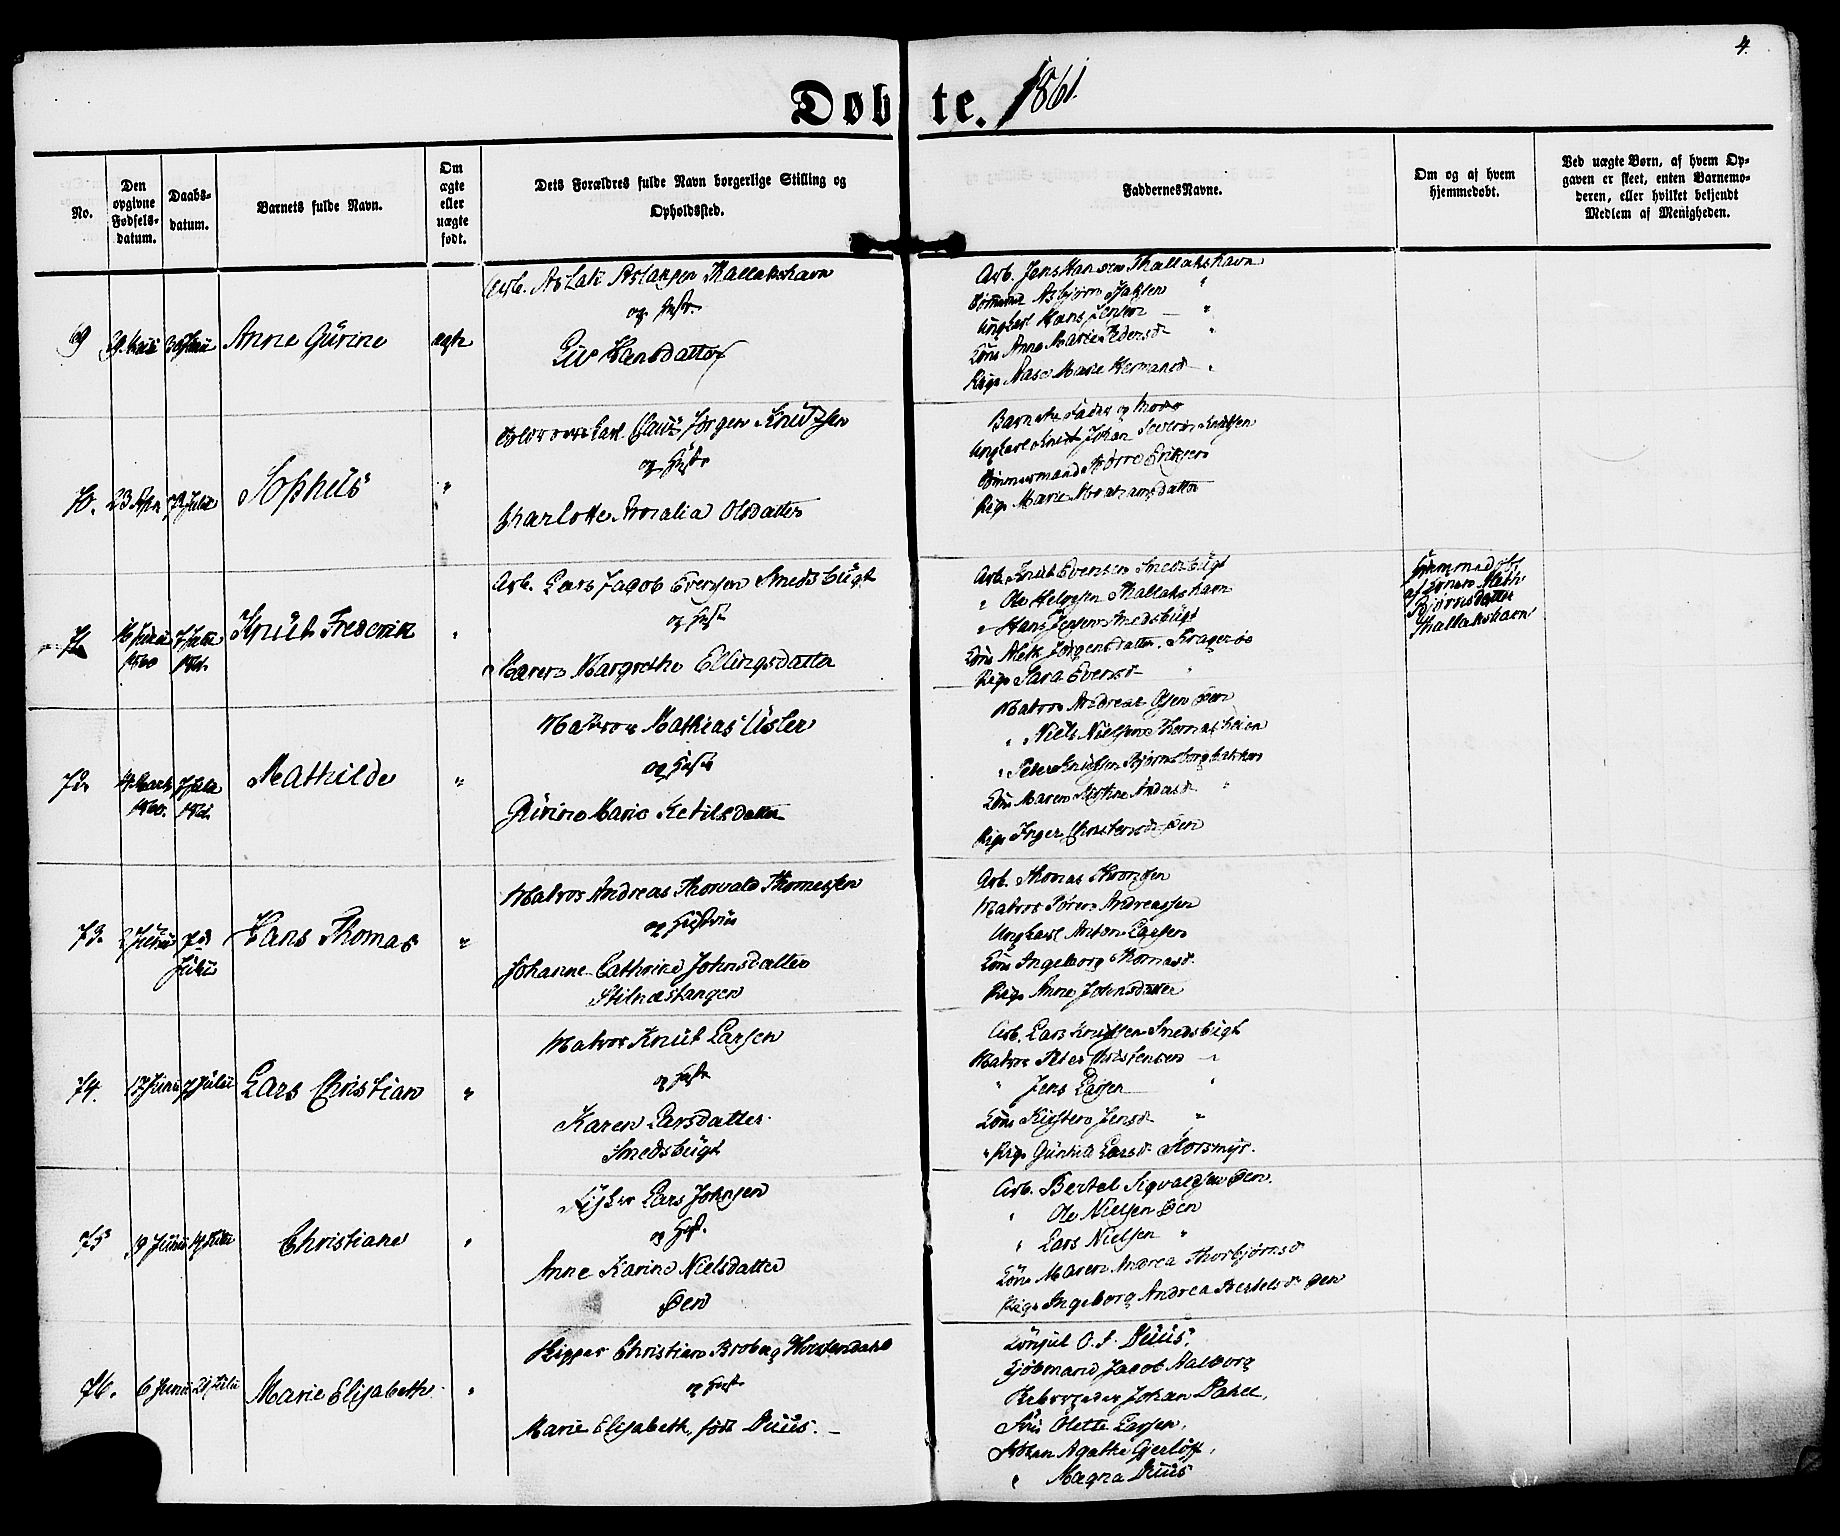 4.
Døbte. 1861.
No.
Den opgivne Fødsels-datum.
Daabs-datum.
Barnets fulde Navn.
Om ægte eller uægte født.
Dets Forældres fulde Navn borgerlige Stilling og Opholdssted.
Faddernes Navne.
Om og af hvem hjemmedøbt.
Ved uægte Børn, af hvem Opgaven er skeet, enten Barnemoderen, eller hvilket bekjendt Medlem af Menigheden.
69
Anne Gurine
ægte
Arb. Aslak Aslaksen Thallakshavn
og Hustr.
Liv Hansdatter
Arb. Jens Hansen Thallakshavn
Asbjørn Isaksen "
Ungkarl Hans Jensen — "
Kone Anne Marie Pedersd. "
Pige Aase Marie Hermansd. "
70.
23 Apr.
7 Juli
Sophus
"
Jørgen Knutzsen
og Hustr.
Charlotte Rosalia Olsdatter
Barnets Fader og Moder
Ungkarl Knut Johan Severin Knutsen
Tømmermand Sørre Eriksen
Pige Marie Abrahamsdatter
71.
1860
7 Juli
1861.
Knut Frederik
"
Arb. Lars Jacob Evensen Smedsbugt
og Hust.
Maren Margrethe Ellingsdatter
Arb. Knut Evensen Smedsbugt
" Ole Helgesen Thallakshavn
" Hans Jensen Smedsbugt
Kone Aleth Jørgensdatter. Kragerøe
Pige Sara Evensd. "
Hjemmedøbt
af Konen Kath.
Bjørnsdatter
Thallakshavn
72.
4 Marts
1860.
7 Juli
1861.
Mathilde
"
Matros Mathias Usler
og Hustr
Gurine Marie Ketilsdatter
Matros Andreas Olsen Øen
" Niels Nielsen Thomasheien
" Peter Knutsen Bjørnsborgbakken
Kone Maren Kirstine Andersd. "
Pige Inger Christensd. Øen
73.
2 Juni
7de
Juli
Hans Thomas
"
Matros Andreas Thorvald Thomessen
og Hustru
Johanne Cathrine Johnsdatter
Stilnæstangen
Arb. Thomas
Matros Søren Andreassen
Ungkarl Anton Larsen
Kone Ingeborg Thomasd.
Pige Anne Johnsdatter
74.
17 Juni
7 Juli
Lars Christian
"
Matros Knut Larsen
og Hustr
Karen Larsdatter.
Smedsbugt
Arb. Lars Knutsen Smedsbugt
Matros Peter Christensen — "
" Jens Larsen — "
Kone Kirsten Jensd. "
Pige Gunhild Larsd. Korsmyr.
75
9 Juni
14 Juli
Christiane
"
Fisker Lars Johnsen
og Hust.
Anne Karine Nielsdatter
Øen
Arb. Bertel Sigvaldsen Øen.
" Ole Nielsen Øen
" Lars Nielsen "
Kone Maren Andrea Thorbjørnsd.
Pige Ingeborg Andrea Bertelsd. Øen
76.
6 Juni
21 Juli
Marie Elisabeth.
"
Skipper Christian Broberg
og Hustr
Marie Elisabeth, født Duus. —
Konsul O. S. Duus,
Kjøbmand Jacob Aalborg
Rebslager Johan Dahll,
Fru Olette Larsen,
Frøken Agathe Gjerløff,
" Magna Duus